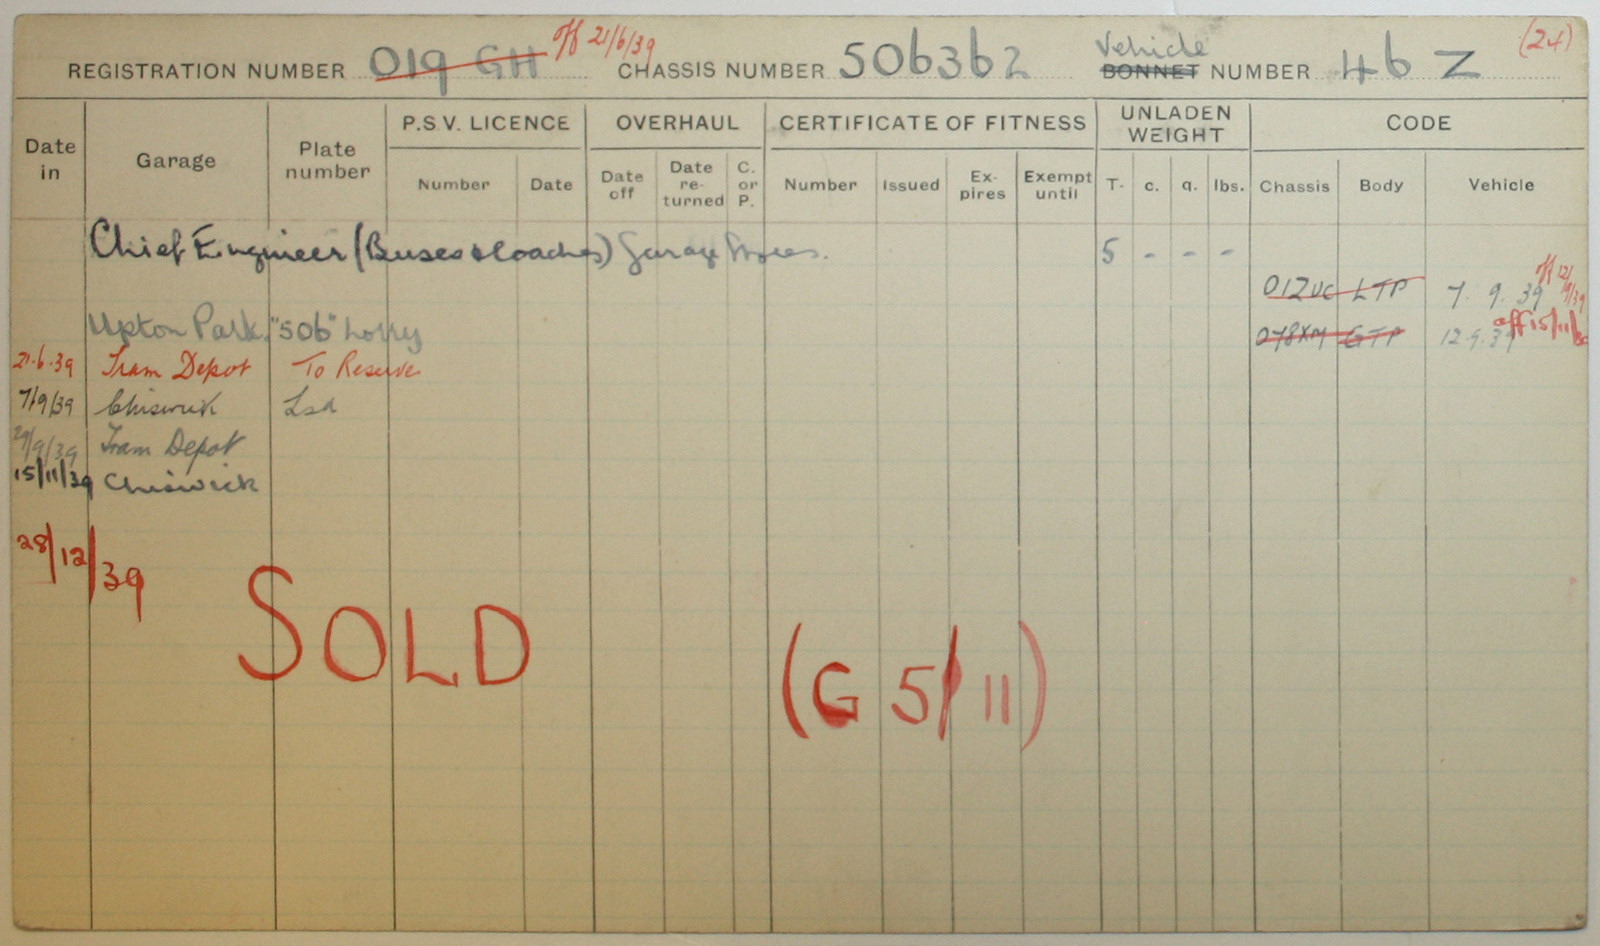 REGISTRATION NUMBER 019 GH off 21/6/39 CHASSIS NUMBER 506362 Vehicle BONNET NUMBER 46 Z (24)
Date in Garage Plate number P.S.V. LICENCE OVERHAUL CERTIFICATE OF FITNESS UNLADEN WEIGHT CODE
Number Date Date off Date re-turned C. or P. Number Issued Ex-pires Exempt until T. c. q. lbs. Chassis Body Vehicle
Chief Engineer (Buses & Coaches) Garage Stores. 5 - - -
017UC LTP 7. 9. 39 off 12/9/39
Upton Park. "506" Lorry 078XM GTP 12.9.39 off 15/11/39
21.6.39 Tram Depot To Reserve
7/9/39 Chiswick Lsd
29/9/39 Tram Depot
15/11/39 Chiswick
28/12/39
SOLD (G 5/11)